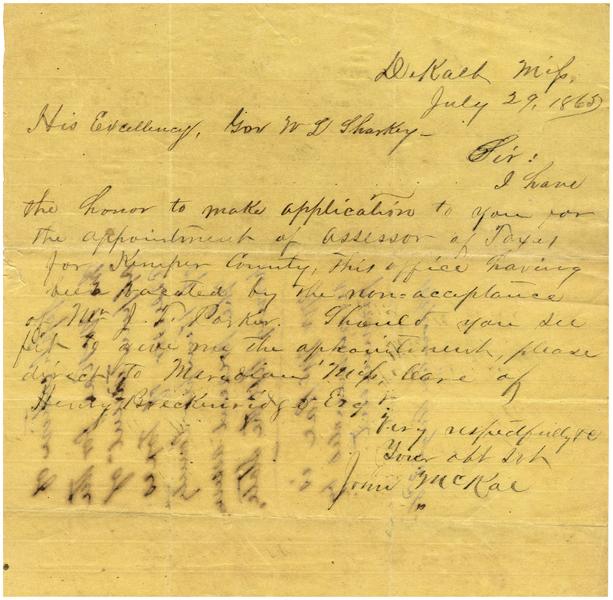 DeKalb Miss.
July 29, 1865
His Excellency, Gov W L Sharkey—
Sir:
I have
the honor to make application to you for
the appointment of Assessor of Taxes
for Kemper County, this office having
been vacated by the non-acceptance
of Mr J. Parker. Should you see
fit to give me the appointment, please
direct to Miss, Care of
Henry Esq
Very respectfully &c
Your obt Svt
John McRae